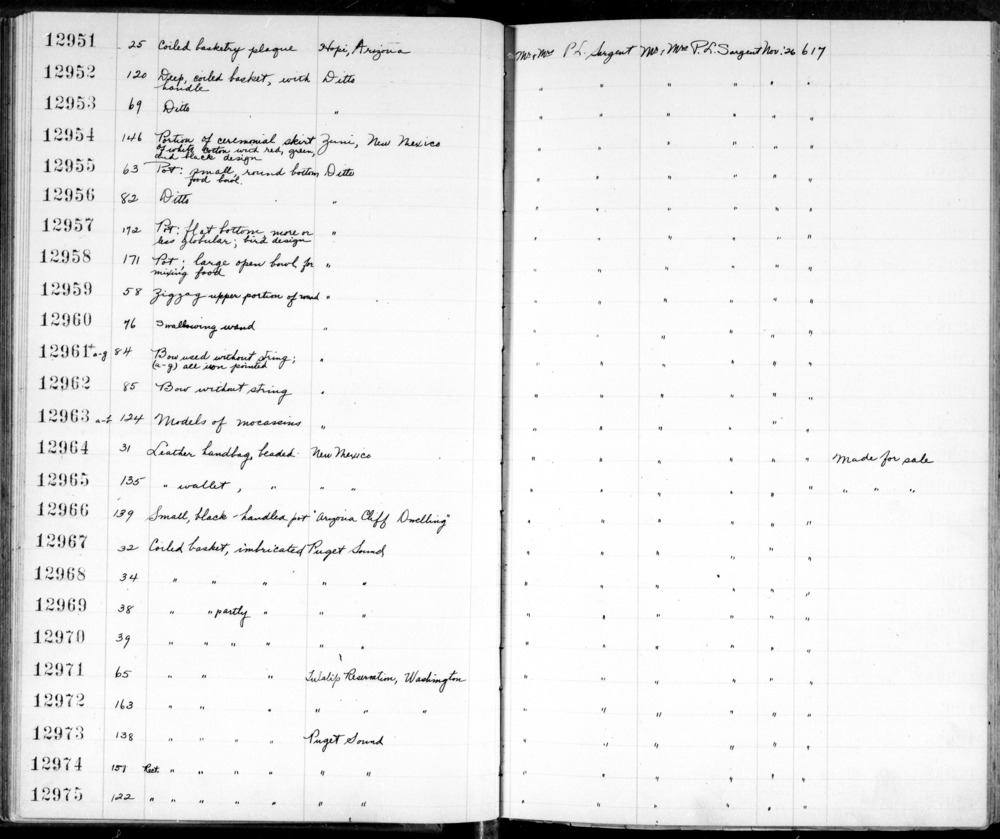 12951 25 Coiled basketry plaque Hopi, Arizona Mr. & Mrs P. L. Sargent Mr. & Mrs P. L. Sargent Nov. 26 617
12952 120 Deep, coiled basket, with Ditto " " " " " "
handle
12953 69 Ditto " " " " " " "
12954 146 Portion of ceremonial skirt Zuni, New Mexico " " " " " "
of white cotton with red, green,
and black design
12955 63 Pot: small, round bottom Ditto " " " " " "
food bowl.
12956 82 Ditto " " " " " " "
12957 172 Pot: flat bottom more or " " " " " " "
less globular; bird design
12958 171 Pot: large open bowl for " " " " " " "
mixing food
12959 58 Zigzag upper portion of wand " " " " " " "
12960 76 Swallowing wand " " " " " " "
12961 + a-g 84 Bow used without string; " " " " " " "
(a-g) all iron pointed
12962 85 Bow without string " " " " " " "
12963 a-b 124 Models of mocassins " " " " " " "
12964 31 Leather handbag, beaded New Mexico " " " " " " Made for sale
12965 135 " wallet, " " " " " " " " " " " "
12966 139 Small, black-handled pot "Arizona Cliff Dwelling" " " " " " "
12967 32 Coiled basket, imbricated Puget Sound " " " " " "
12968 34 " " " " " " " " " " "
12969 38 " " partly " " " " " " " " "
12970 39 " " " " " " " " " " " "
12971 65 " " " Tulalip Reservation, Washington " " " " " "
12972 163 " " " " " " " " " " " "
12973 138 " " " " Puget Sound " " " " " "
12974 151 Rect. " " " " " " " " " " " "
12975 122 " " " " " " " " " " " "